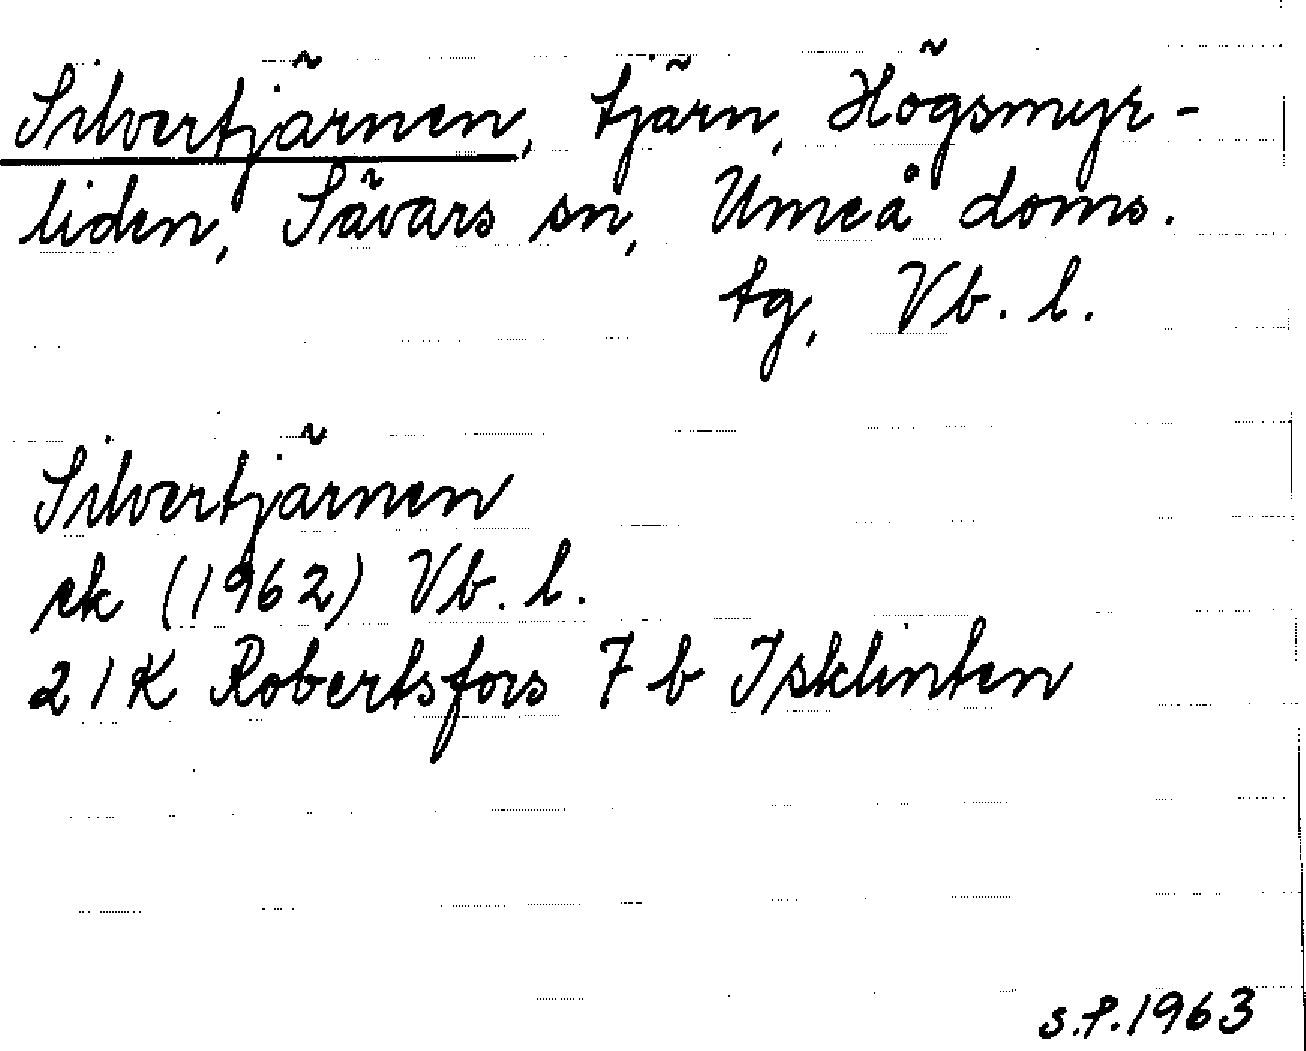 Silvertjärnen, tjärn, Högsmyr-
liden, Sävars sn, Umeå doms.
tg, Vb. l.
Silvertjärnen
ek (1962) Vb. l.
21K Robertsfors 7 b Isklinten
s.f. 1963